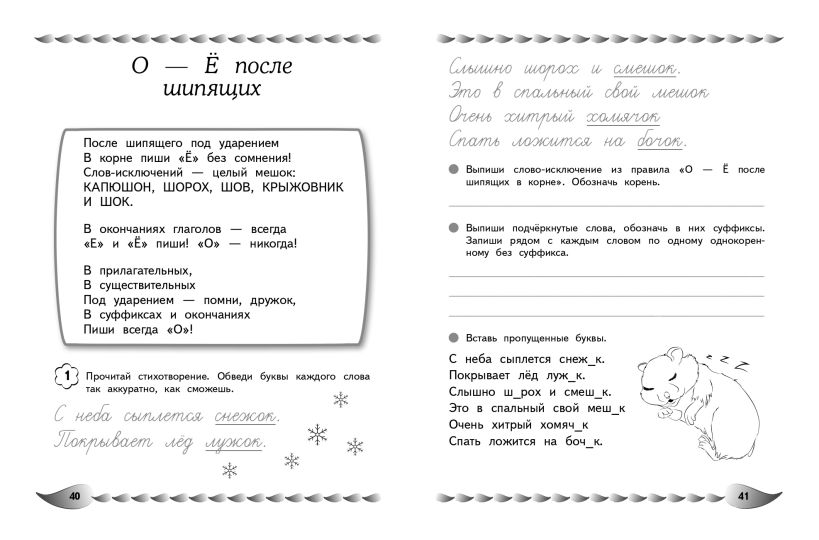 О — Ё после
шипящих
После шипящего под ударением
В корне пиши «Ё» без сомнения!
Слов-исключений — целый мешок:
КАПЮШОН, ШОРОХ, ШОВ, КРЫЖОВНИК
И ШОК.
В окончаниях глаголов — всегда
«Е» и «Ё» пиши! «О» — никогда!
В прилагательных,
В существительных
Под ударением — помни, дружок,
В суффиксах и окончаниях
Пиши всегда «О»!
1 Прочитай стихотворение. Обведи буквы каждого слова
так аккуратно, как сможешь.
С неба сыплется снежок.
Покрывает лёд лужок.
40
Слышно шорох и смешок.
Это в спальный свой мешок
Очень хитрый хомячок
Спать ложится на бочок.
Выпиши слово-исключение из правила «О — Ё после
шипящих в корне». Обозначь корень.
Выпиши подчёркнутые слова, обозначь в них суффиксы.
Запиши рядом с каждым словом по одному однокорен-
ному без суффикса.
Вставь пропущенные буквы.
С неба сыплется снеж_к.
Покрывает лёд луж_к.
Слышно ш_рох и смеш_к.
Это в спальный свой меш_к
Очень хитрый хомяч_к
Спать ложится на боч_к.
z z Z Z
41